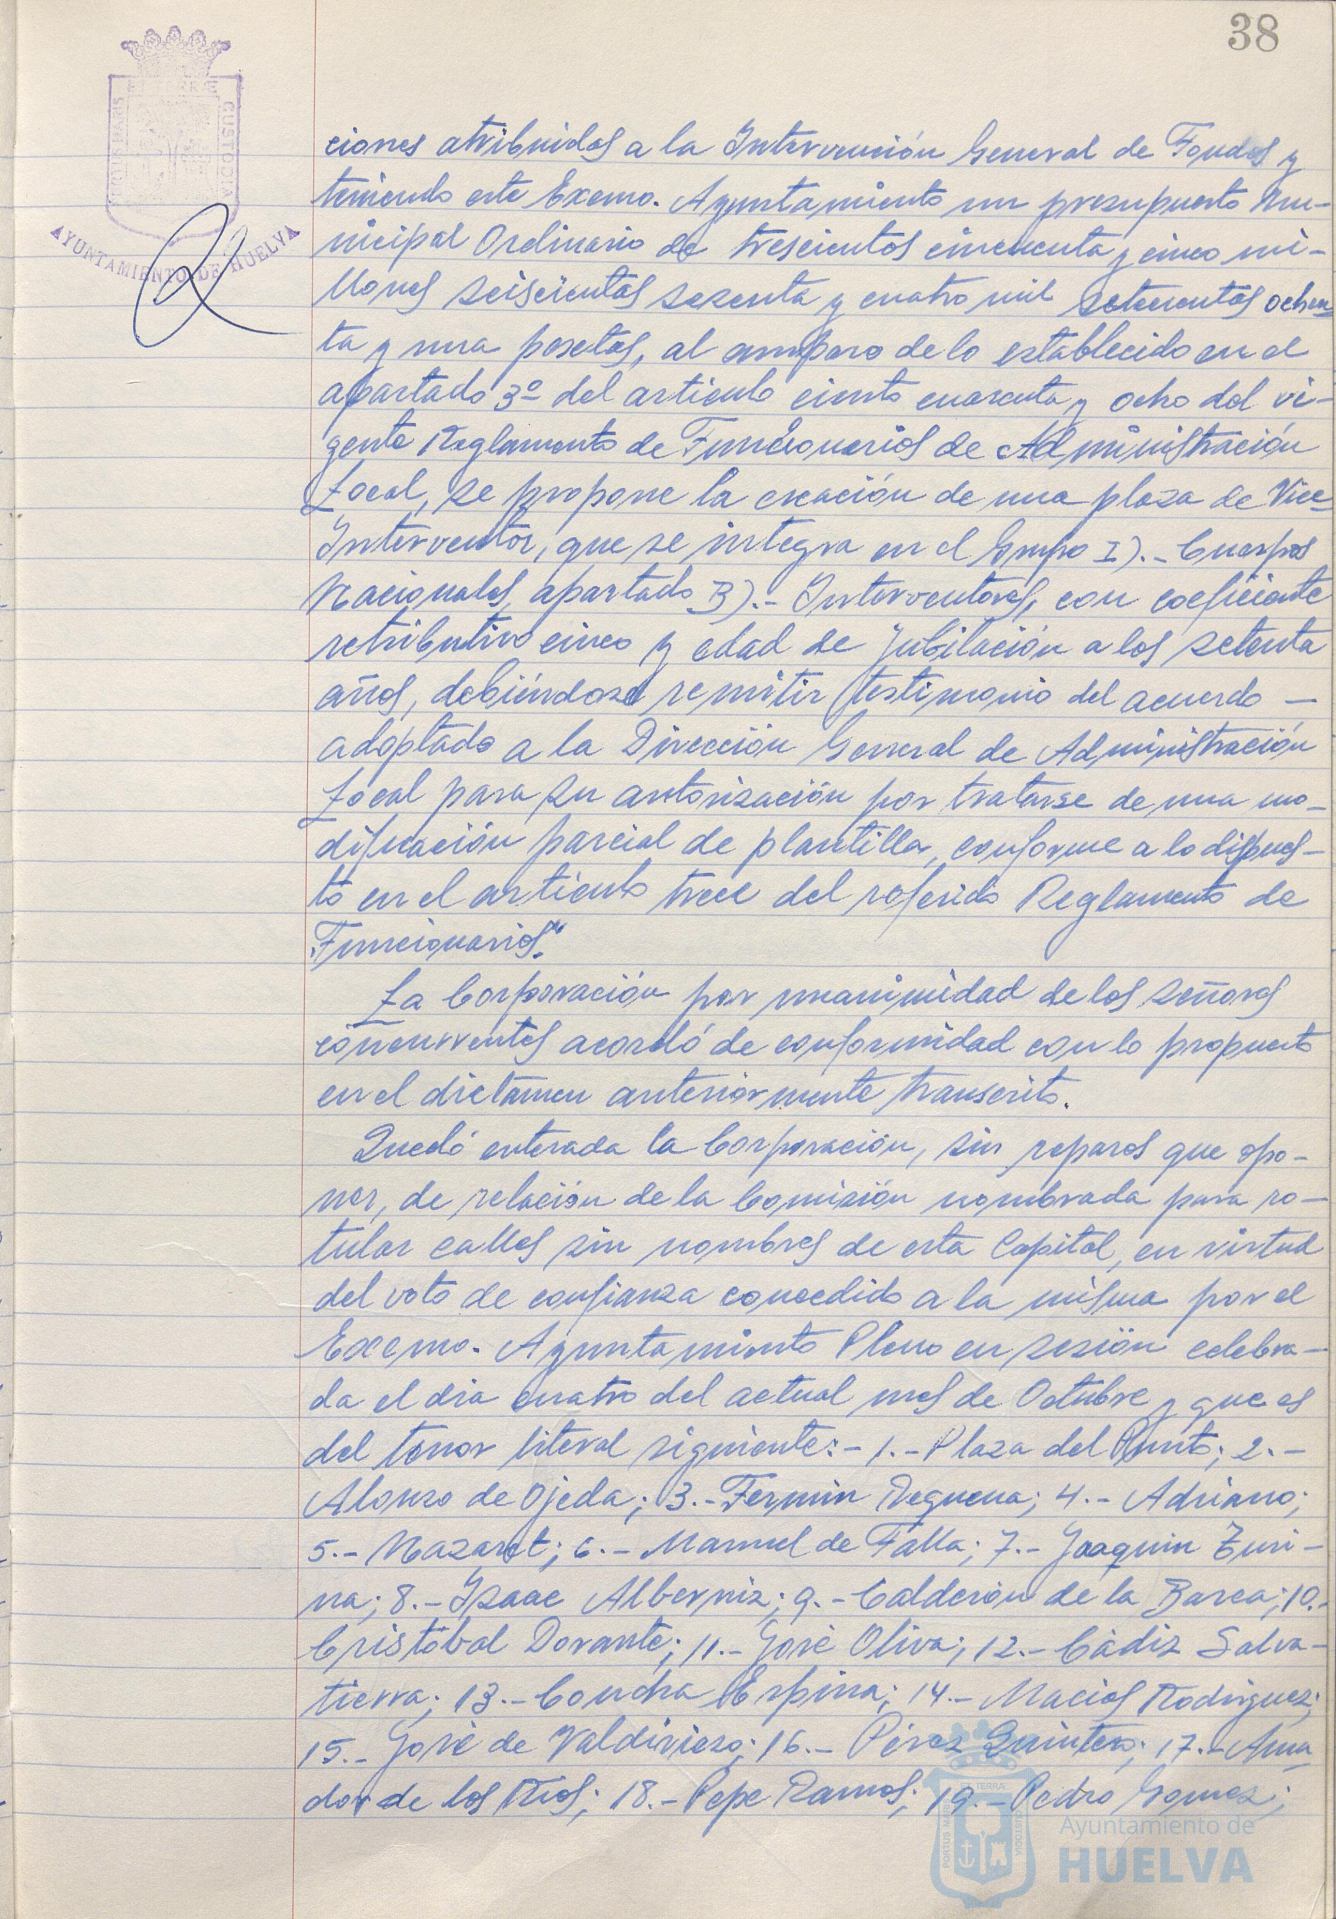 38
PORTUS MARIS ET TERRAE CUSTODIA
AYUNTAMIENTO DE HUELVA
ciones atribuidas a la Intervención General de Fondos y
teniendo este Excmo. Ayuntamiento un presupuesto Mu-
nicipal Ordinario de trescientos cincuenta y cinco mi-
llones seiscientas sesenta y cuatro mil setecientas ochen
ta y una pesetas, al amparo de lo establecido en el
apartado 3º del artículo ciento cuarenta y ocho del vi-
gente Reglamento de Funcionarios de Administración
Local, se propone la creación de una plaza de Vice-
Interventor, que se integra en el Grupo I).- Cuerpos
Nacionales apartado B).- Interventores, con coeficiente
retributivo cinco y edad de jubilación a los setenta
años, debiéndose remitir testimonio del acuerdo —
adoptado a la Dirección General de Administración
Local para su autorización por tratarse de una mo-
dificación parcial de plantilla, conforme a lo dispues-
to en el artículo trece del referido Reglamento de
Funcionarios".
La Corporación por unanimidad de los señores
concurrentes acordó de conformidad con lo propuesto
en el dictamen anteriormente transcrito.
Quedó enterada la Corporación, sin reparos que opo-
ner, de relación de la Comisión nombrada para ro-
tular calles sin nombres de esta Capital, en virtud
del voto de confianza concedido a la misma por el
Excmo. Ayuntamiento Pleno en sesión celebra-
da el dia cuatro del actual mes de Octubre y que es
del tenor literal siguiente:- 1.- Plaza del Punto; 2.-
Alonso de Ojeda; 3.- Fermin Requena; 4.- Adriano;
5.- Nazaret; 6.- Manuel de Falla; 7.- Joaquin Turi-
na; 8.- Isaac Alberniz; 9.- Calderón de la Barca; 10.-
Cristóbal Dorante; 11.- José Oliva; 12.- Cádiz Salva-
tierra; 13.- Concha Espina; 14.- Macias Rodriguez;
15.- José de Valdivieso; 16.- Pérez Quintero; 17.- Ama
dor de los Rios; 18.- Pepe Ramos; 19.- Pedro Gomez;
PORTUS MARIS ET TERRAE CUSTODIA
Ayuntamiento de
HUELVA